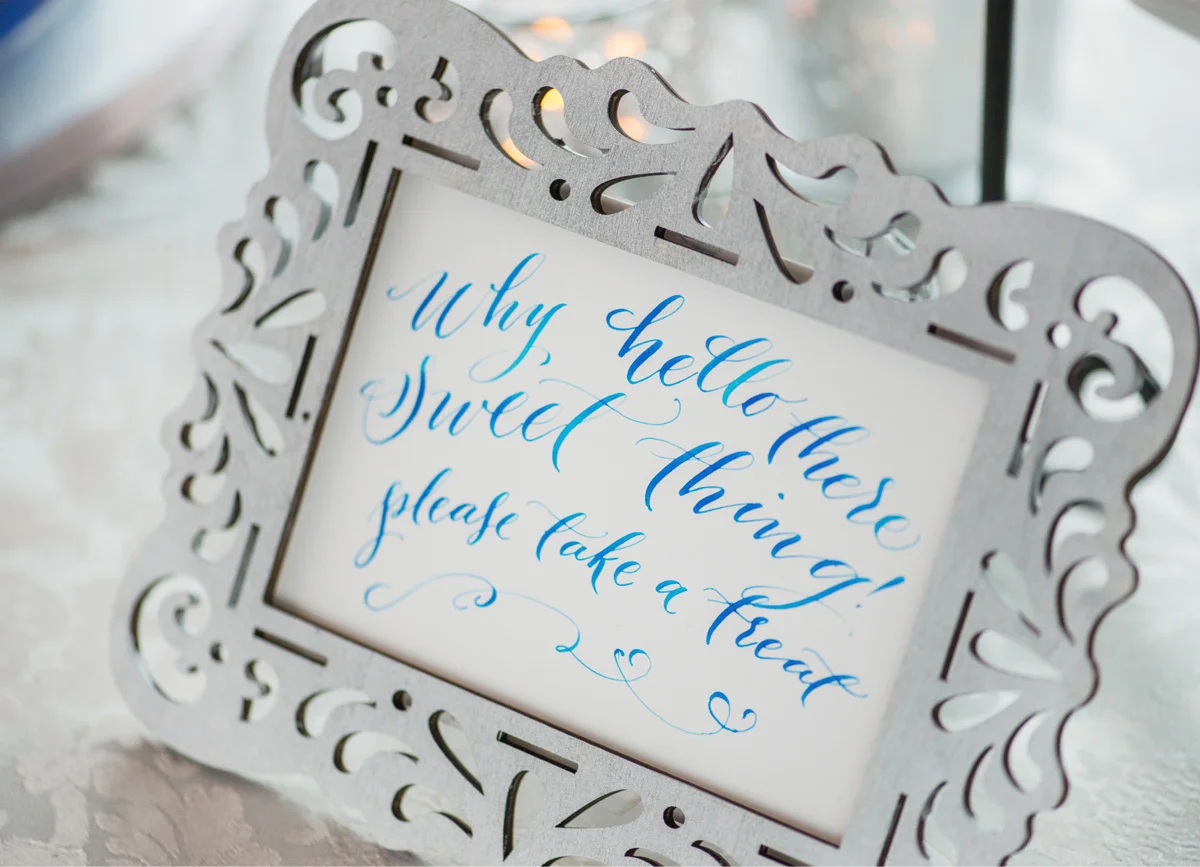 Why hello there
Sweet thing!
please take a treat